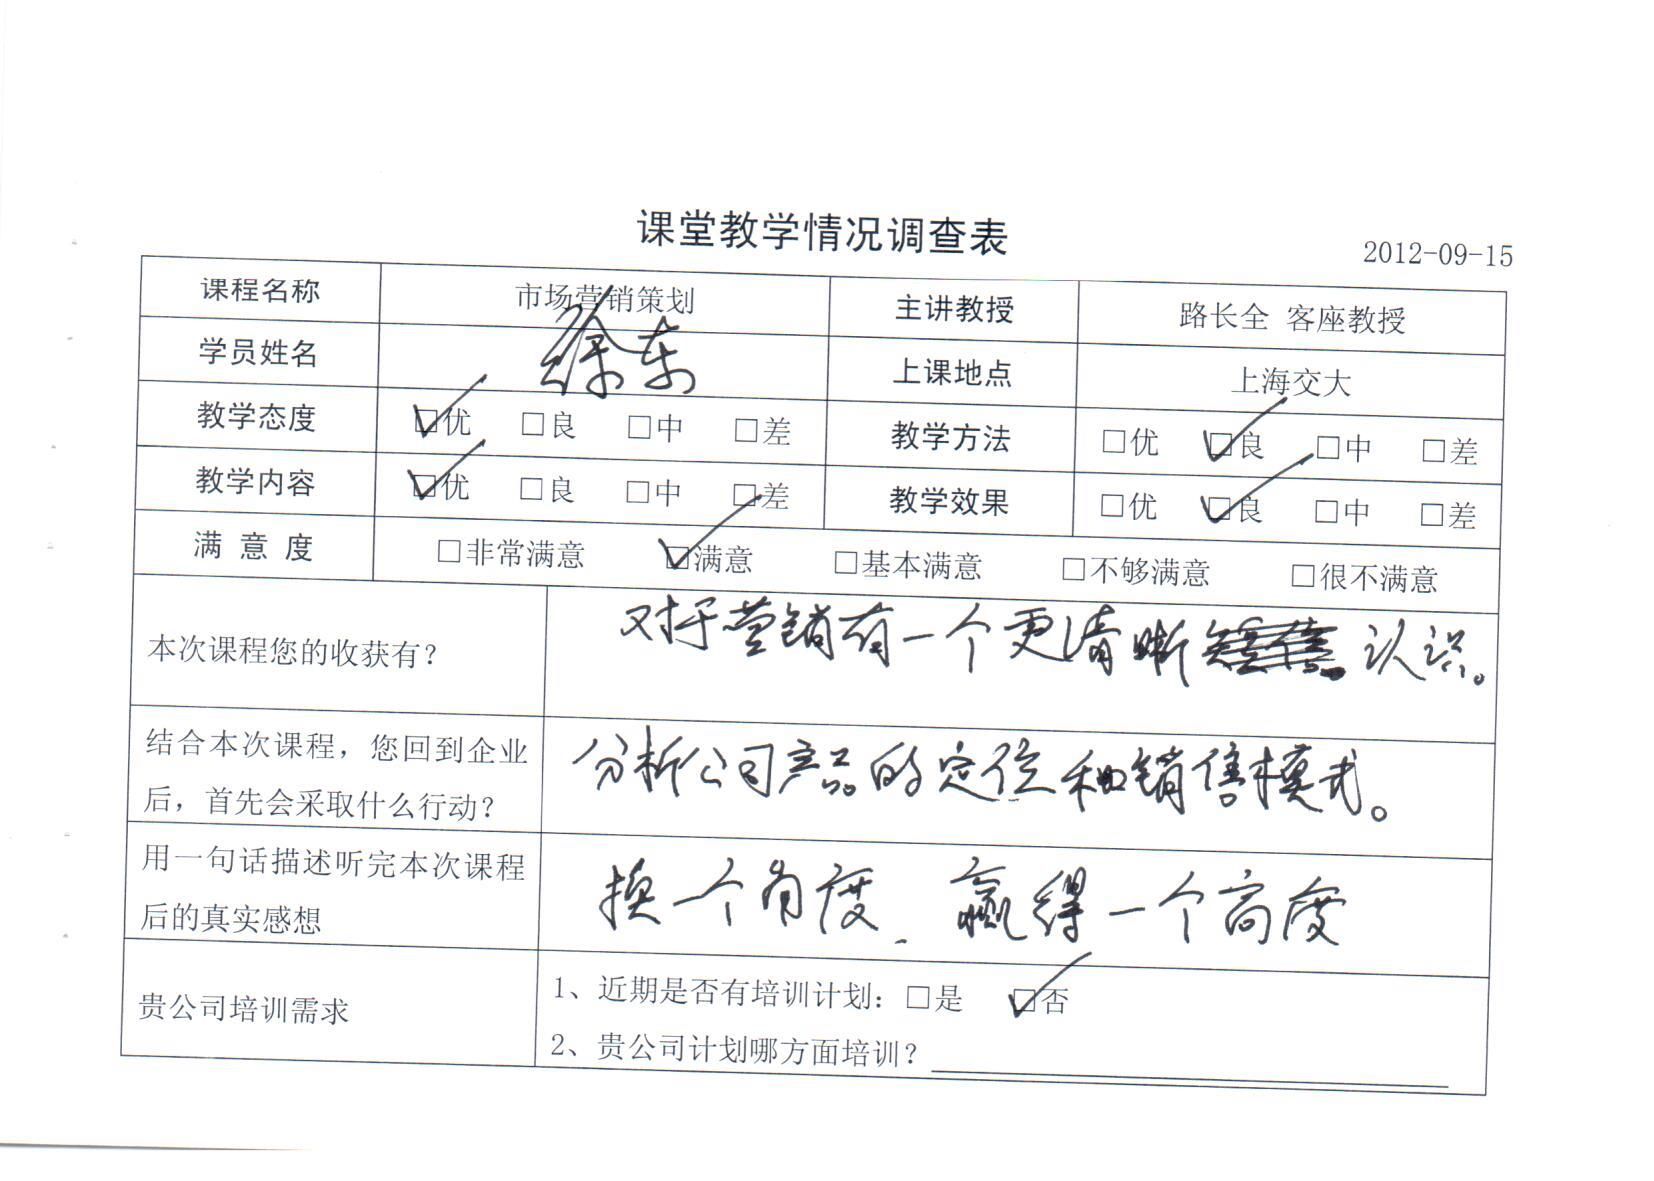 课堂教学情况调查表
2012-09-15
课程名称 市场营销策划 主讲教授 路长全 客座教授
学员姓名 徐东 上课地点 上海交大
教学态度 ☑优 □良 □中 □差 教学方法 □优 ☑良 □中 □差
教学内容 ☑优 □良 □中 □差 教学效果 □优 ☑良 □中 □差
满 意 度 □非常满意 ☑满意 □基本满意 □不够满意 □很不满意
本次课程您的收获有？ 对于营销有一个更清晰认识。
结合本次课程，您回到企业
后，首先会采取什么行动？
分析公司产品的定位和销售模式。
用一句话描述听完本次课程
后的真实感想
换一个角度、赢得一个高度
贵公司培训需求
1、近期是否有培训计划：□是 ☑否
2、贵公司计划哪方面培训？